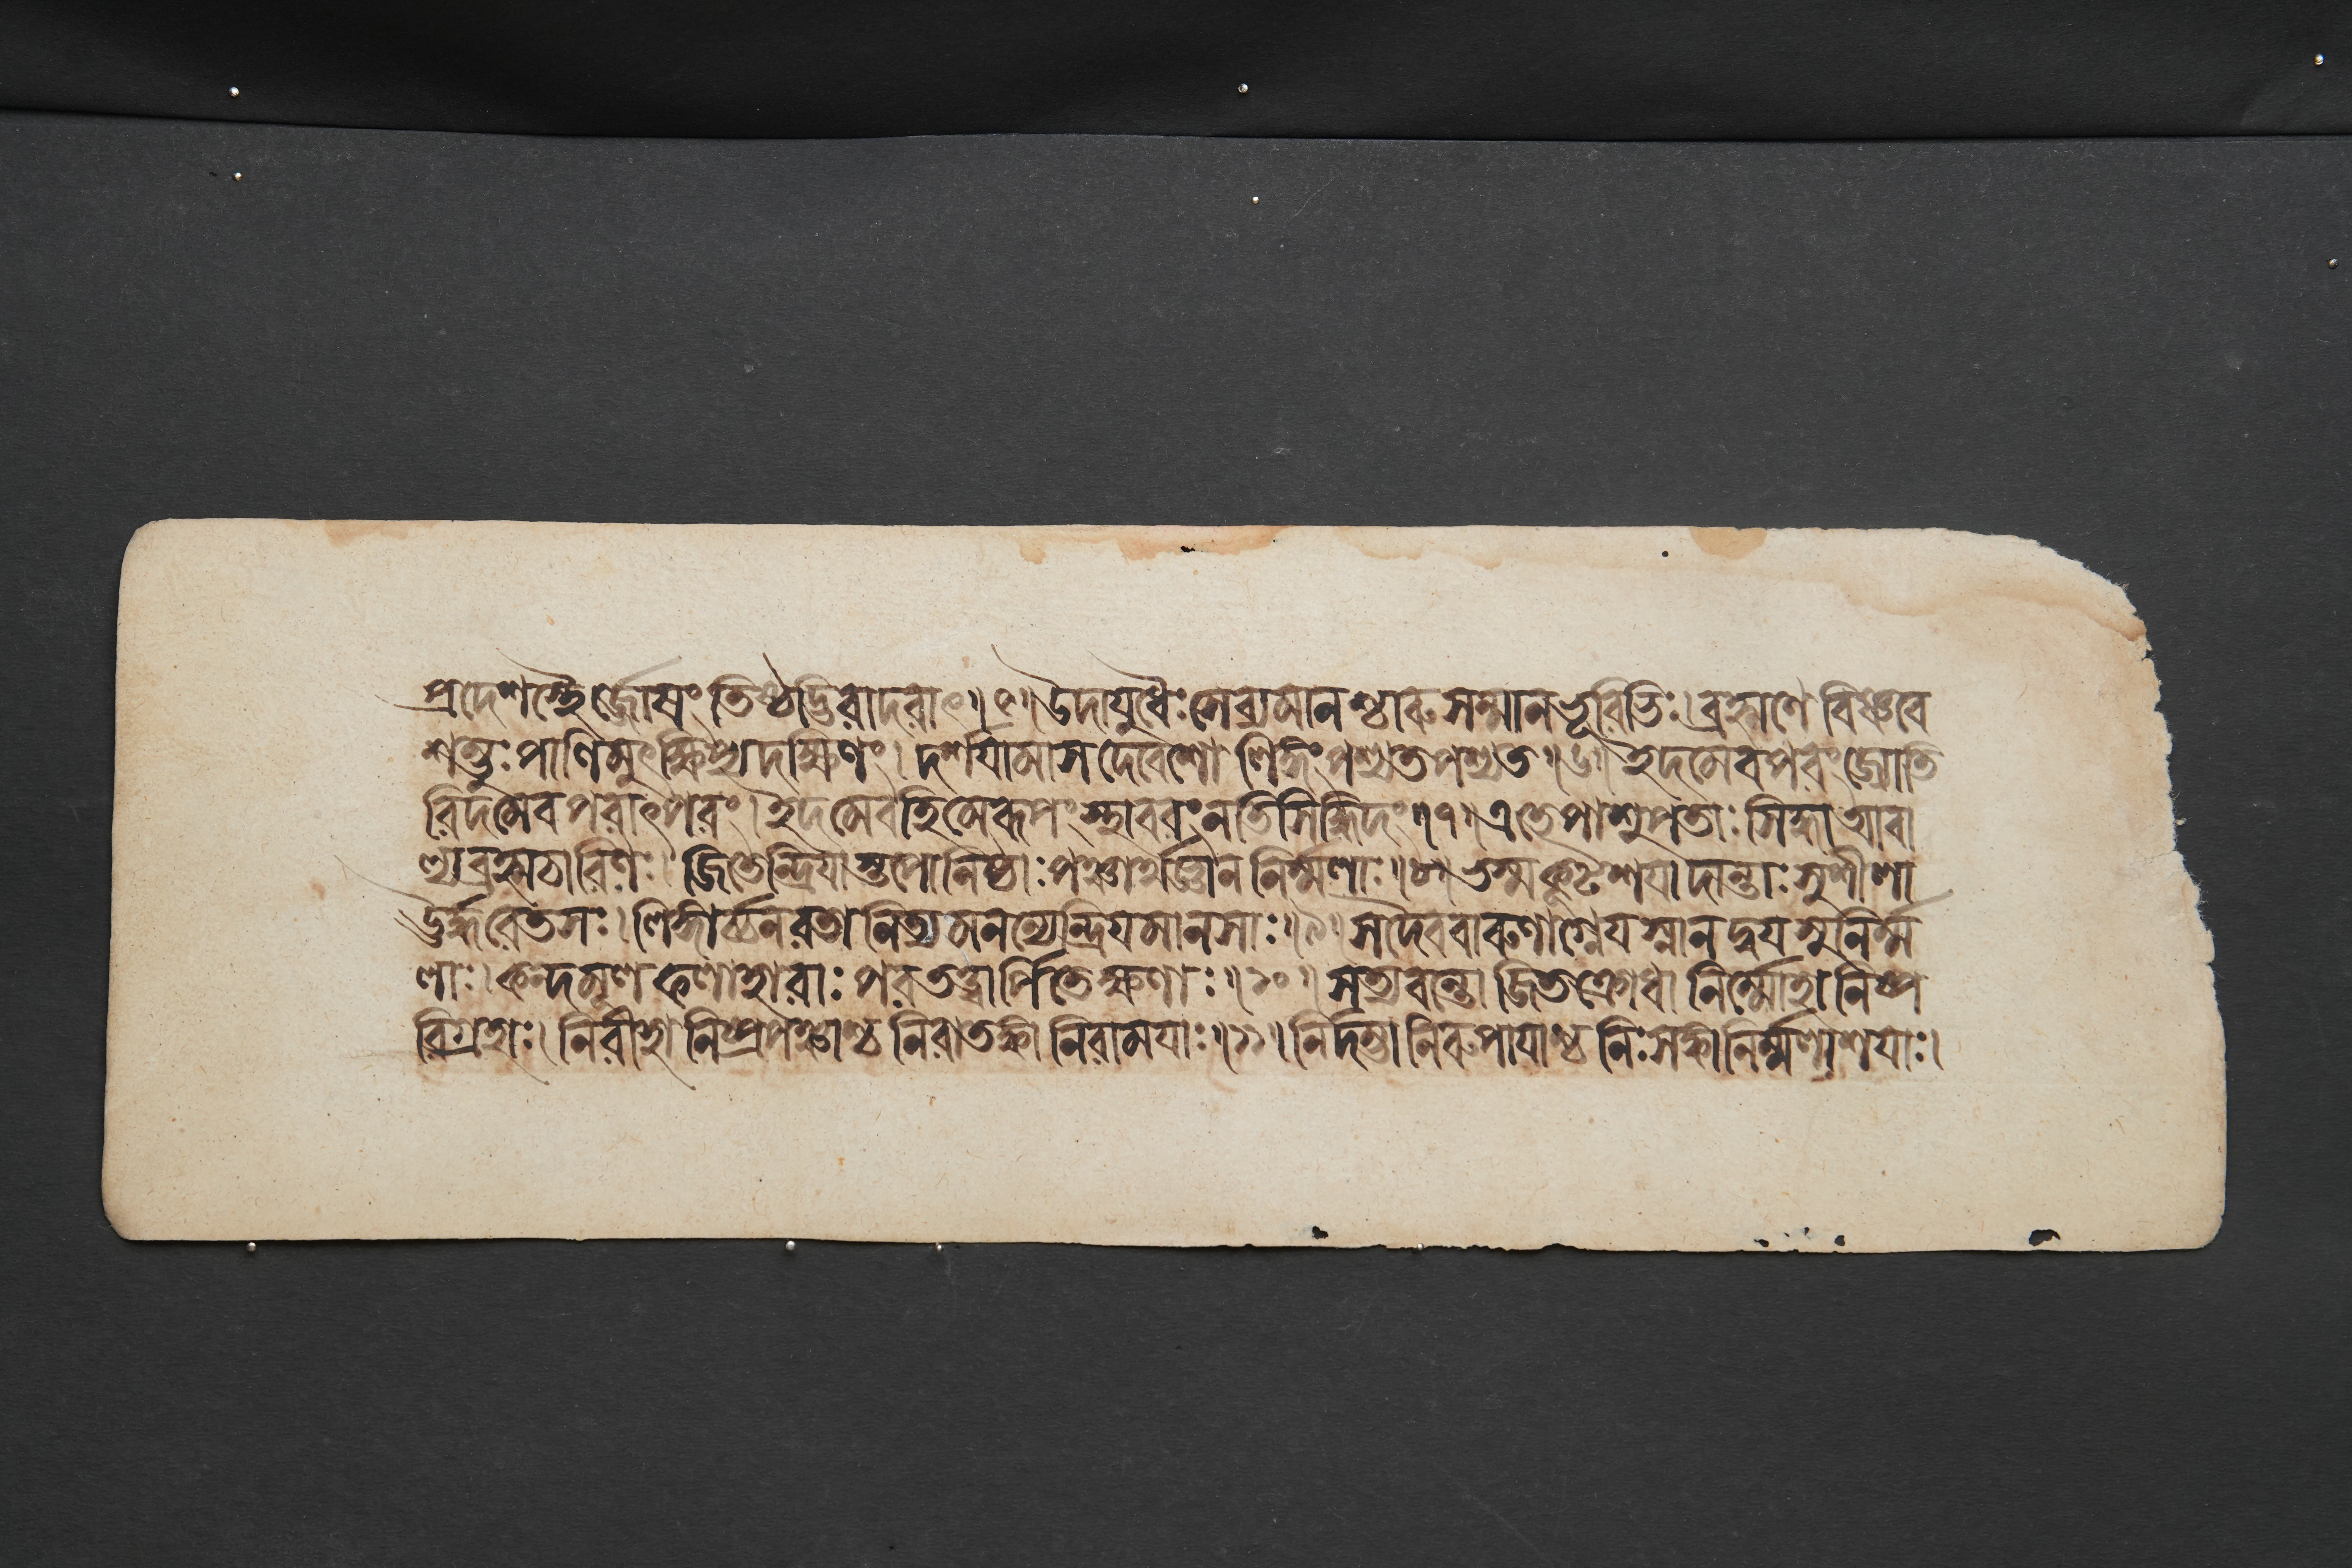 প্রদেশস্থৈর্জ্জোষং তিষ্ঠদ্ভিরাদরাৎ॥৫॥উদাযুধৈঃসেব্যমানশ্চারুসম্মানভূরিভিঃ।ব্রহ্মণে বিষ্ণবে
শম্ভুঃপাণিমুৎক্ষিপ্যদক্ষিণং।দর্শযামাসদেবেশো লিঙ্গংপশ্যতপশ্যত॥৬॥ইদমেবপরংজ্যোতি
রিদমেবপরাৎপরং।ইদমেবহিমেরূপংস্থাবরংনতিসিদ্ধিদং॥৭॥এতেপাশুপতাঃসিদ্ধাআবা
ল্যব্রহ্মচারিণঃ।জিতেন্দ্রিযাস্তপোনিষ্ঠাঃপঞ্চার্থজ্ঞাননির্ম্মলাঃ॥৮॥ভস্মকূটশযাদান্তাঃসুশীলা
ঊর্দ্ধরেতসঃ।লিঙ্গার্চ্চনরতানিত্যমনন্যেন্দ্রিযমানসাঃ॥৯॥সদৈববারুণাগ্নেযস্নানদ্বযসুনির্ম্ম
লাঃ।কন্দমূলফলাহারাঃপরতত্ত্বার্পিতেক্ষণাঃ॥১০॥সত্যবন্তোজিতক্রোধা নির্ম্মোহানিষ্প
রিগ্রহাঃ।নিরীহা নিষ্প্রপঞ্চাশ্চনিরাতঙ্কা নিরামযাঃ॥১১॥নির্দম্ভানিরুপাযাশ্চ নিঃসঙ্গানির্ম্মলাশযাঃ।